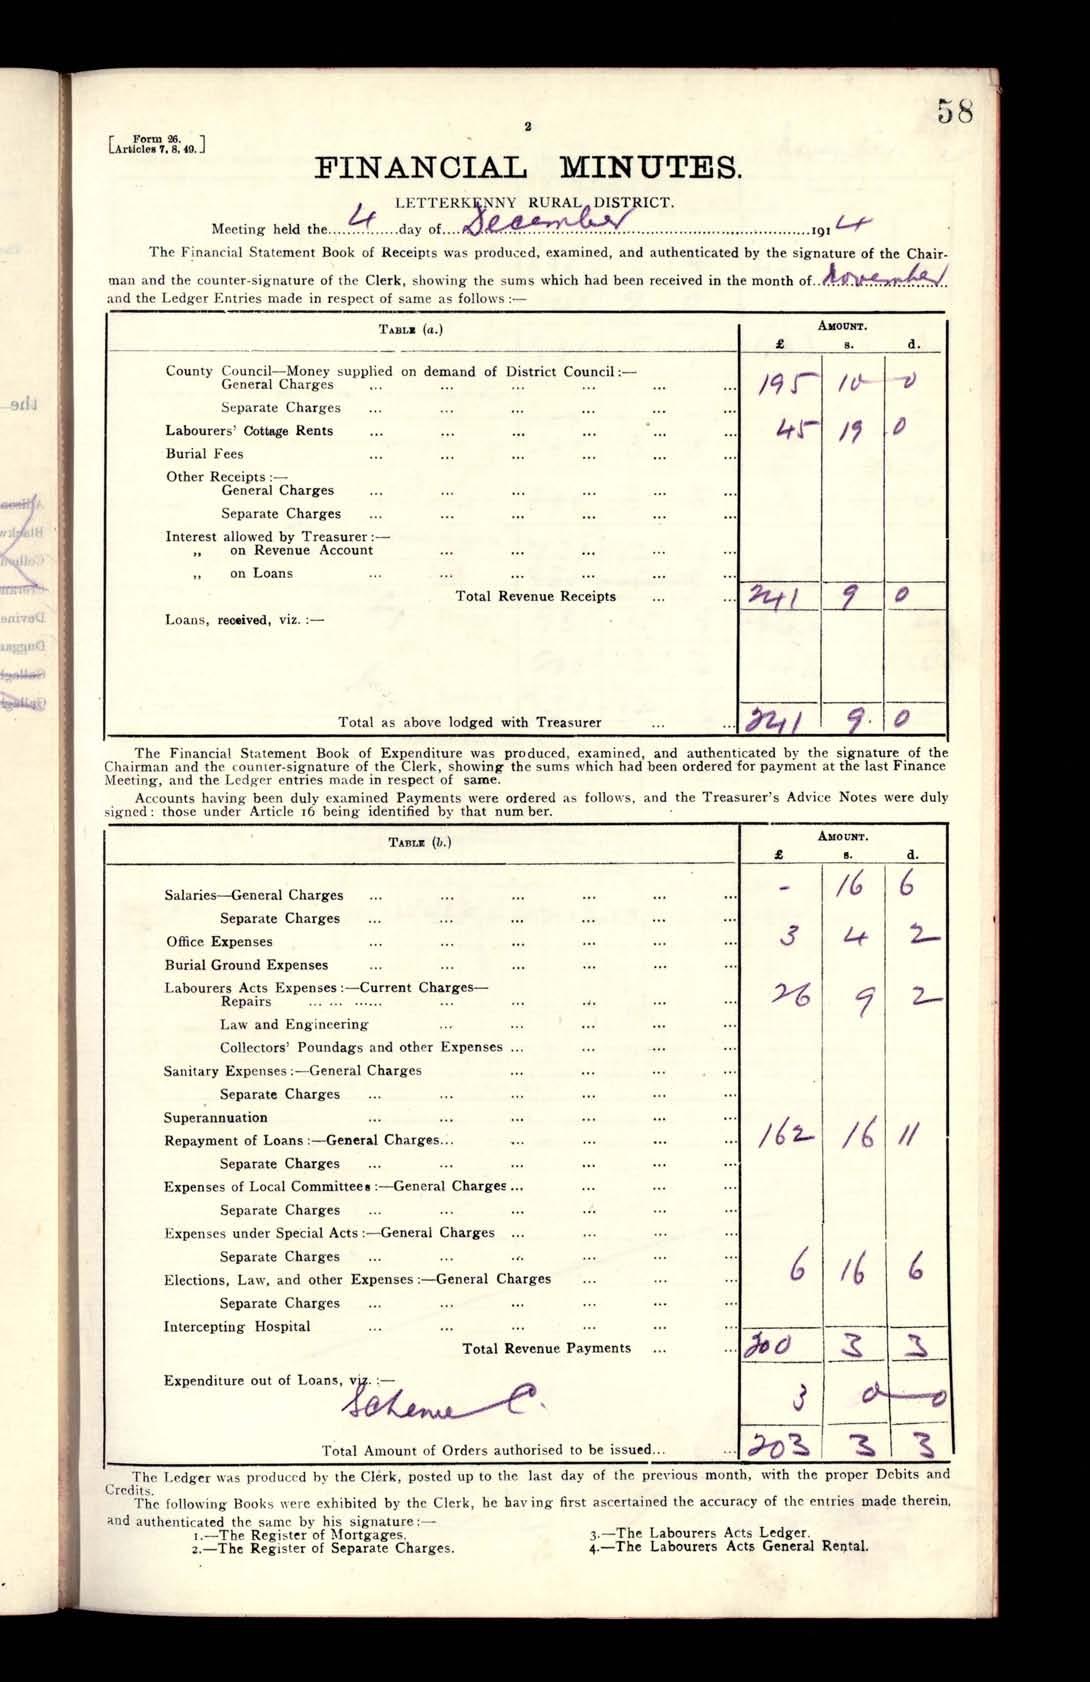 58
2
[Form 26.
Articles 7, 8, 49.]
FINANCIAL MINUTES.
LETTERKENNY RURAL DISTRICT.
Meeting held the 4 day of December 1914
The Financial Statement Book of Receipts was produced, examined, and authenticated by the signature of the Chair-
man and the counter-signature of the Clerk, showing the sums which had been received in the month of November
and the Ledger Entries made in respect of same as follows :—
TABLE (a.) AMOUNT.
£ s. d.
County Council—Money supplied on demand of District Council :—
General Charges ... ... ... ... ... ... 195 10 0
Separate Charges ... ... ... ... ... ...
Labourers' Cottage Rents ... ... ... ... ... ... 45 19 0
Burial Fees ... ... ... ... ... ...
Other Receipts :—
General Charges ... ... ... ... ... ...
Separate Charges ... ... ... ... ... ...
Interest allowed by Treasurer :—
„ on Revenue Account ... ... ... ... ...
„ on Loans ... ... ... ... ... ...
Total Revenue Receipts ... ... 241 9 0
Loans, received, viz. :—
Total as above lodged with Treasurer ... ... 241 9. 0
The Financial Statement Book of Expenditure was produced, examined, and authenticated by the signature of the
Chairman and the counter-signature of the Clerk, showing the sums which had been ordered for payment at the last Finance
Meeting, and the Ledger entries made in respect of same.
Accounts having been duly examined Payments were ordered as follows, and the Treasurer's Advice Notes were duly
signed: those under Article 16 being identified by that num ber.
TABLE (b.) AMOUNT.
£ s. d.
Salaries—General Charges ... ... ... ... ... ... - 16 6
Separate Charges ... ... ... ... ... ...
Office Expenses ... ... ... ... ... ... 3 4 2
Burial Ground Expenses ... ... ... ... ... ...
Labourers Acts Expenses :—Current Charges—
Repairs ... ... ...... ... ... ... ... ... 26 9 2
Law and Engineering ... ... ... ... ...
Collectors' Poundags and other Expenses ... ... ... ...
Sanitary Expenses :—General Charges ... ... ... ...
Separate Charges ... ... ... ... ... ...
Superannuation ... ... ... ... ... ...
Repayment of Loans :—General Charges... ... ... ... ... 162 16 11
Separate Charges ... ... ... ... ... ...
Expenses of Local Committees :—General Charges ... ... ... ...
Separate Charges ... ... ... ... ... ...
Expenses under Special Acts :—General Charges ... ... ... ...
Separate Charges ... ... ... ... ... ...
Elections, Law, and other Expenses :—General Charges ... ... ... 6 16 6
Separate Charges ... ... ... ... ... ...
Intercepting Hospital ... ... ... ... ... ...
Total Revenue Payments ... ... 200 3 3
Expenditure out of Loans, viz. :—
Scheme C. 3 0 0
Total Amount of Orders authorised to be issued... ... 203 3 3
The Ledger was produced by the Clerk, posted up to the last day of the previous month, with the proper Debits and
Credits.
The following Books were exhibited by the Clerk, he having first ascertained the accuracy of the entries made therein,
and authenticated the same by his signature :—
1.—The Register of Mortgages. 3.—The Labourers Acts Ledger.
2.—The Register of Separate Charges. 4.—The Labourers Acts General Rental.